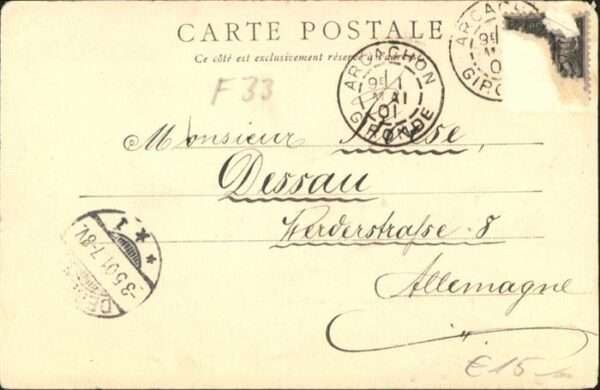 CARTE POSTALE
Ce côté est exclusivement réservé à l'adresse
F 33
ARCACHON
1
MAI
01
GIRONDE
ARCAC
GIRO
Monsieur
Dessau
Werderstraße 8
Allemagne
1
* *
-3.5.01.7-8V.
€15